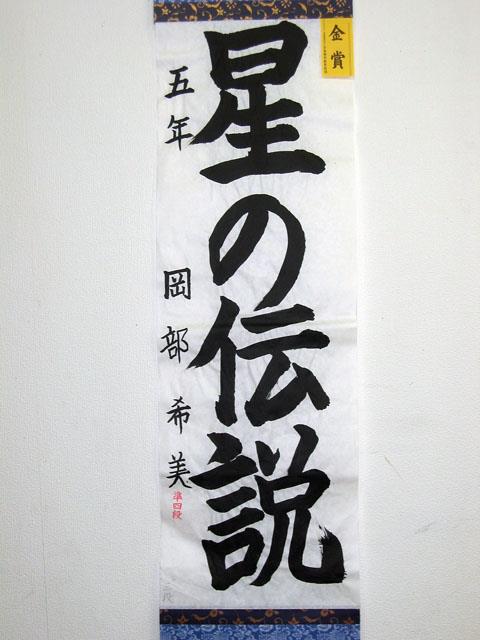 金賞
星の伝説
五年 岡部希美
準四段